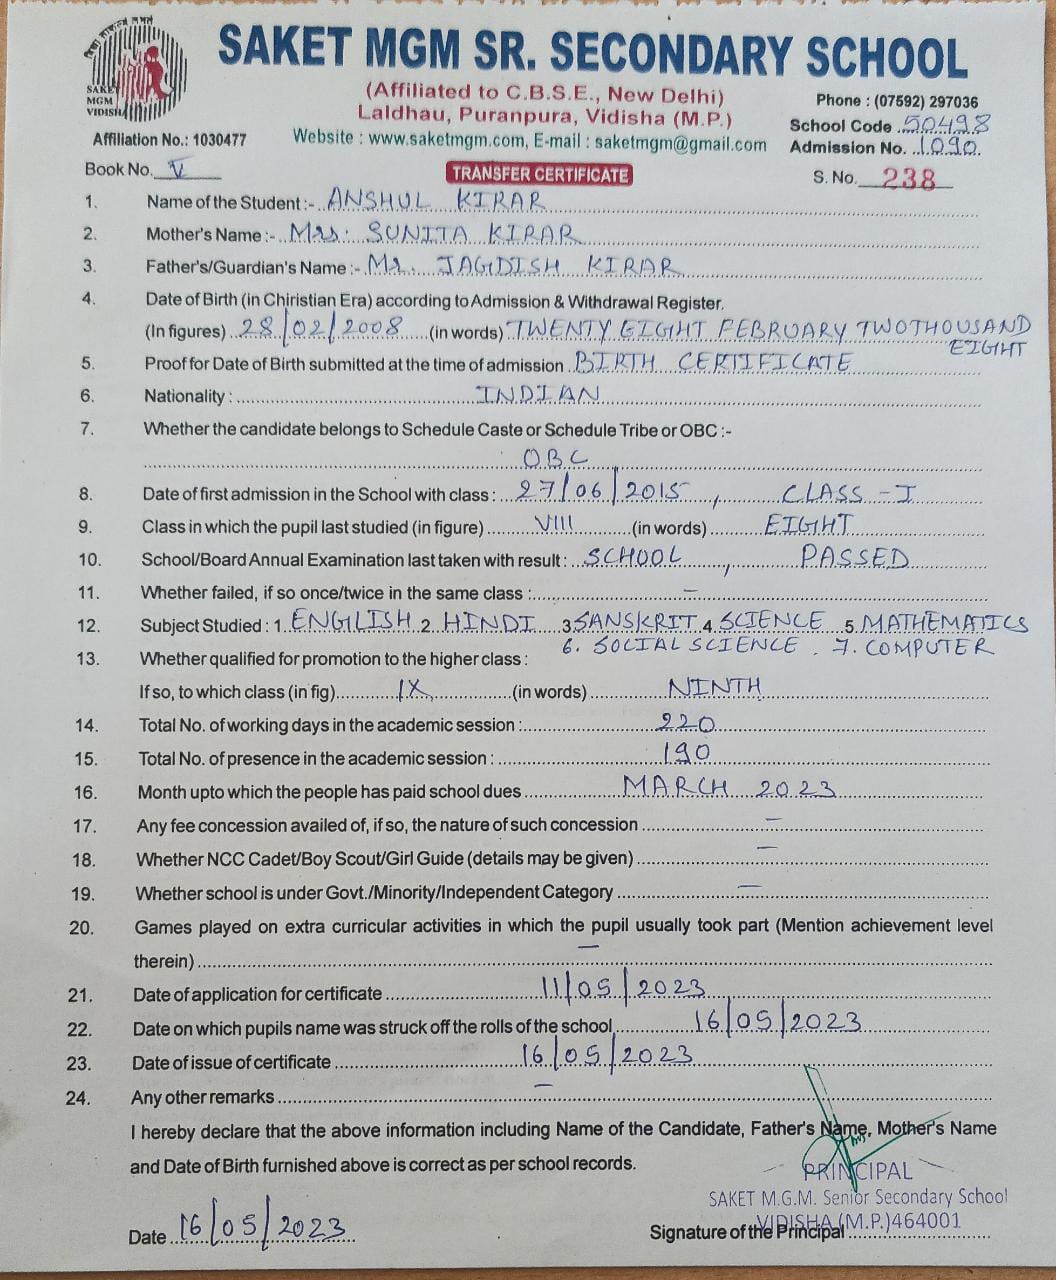 SAKET MGM SR. SECONDARY SCHOOL
SAKET
MGM
VIDISHA
(Affiliated to C.B.S.E., New Delhi)
Laldhau, Puranpura, Vidisha (M.P.)
Phone : (07592) 297036
School Code 50498
Affiliation No.: 1030477
Website : www.saketmgm.com, E-mail : saketmgm@gmail.com
Admission No. 1090
Book No. V
TRANSFER CERTIFICATE
S. No. 238
1. Name of the Student :- ANSHUL KIRAR
2. Mother's Name :- Mrs. SUNITA KIRAR
3. Father's/Guardian's Name :- Mr. JAGDISH KIRAR
4. Date of Birth (in Chiristian Era) according to Admission & Withdrawal Register.
(In figures) 28/02/2008 (in words) TWENTY EIGHT FEBRUARY TWOTHOUSAND
EIGHT
5. Proof for Date of Birth submitted at the time of admission BIRTH CERTIFICATE
6. Nationality : INDIAN
7. Whether the candidate belongs to Schedule Caste or Schedule Tribe or OBC :-
OBC
8. Date of first admission in the School with class : 27/06/2015, CLASS - I
9. Class in which the pupil last studied (in figure) VIII (in words) EIGHT
10. School/Board Annual Examination last taken with result : SCHOOL, PASSED
11. Whether failed, if so once/twice in the same class : -
12. Subject Studied : 1. ENGLISH 2. HINDI 3. SANSKRIT 4. SCIENCE 5. MATHEMATICS
6. SOCIAL SCIENCE . 7. COMPUTER
13. Whether qualified for promotion to the higher class :
If so, to which class (in fig) IX (in words) NINTH
14. Total No. of working days in the academic session : 220
15. Total No. of presence in the academic session : 190
16. Month upto which the people has paid school dues MARCH 2023
17. Any fee concession availed of, if so, the nature of such concession -
18. Whether NCC Cadet/Boy Scout/Girl Guide (details may be given) -
19. Whether school is under Govt./Minority/Independent Category -
20. Games played on extra curricular activities in which the pupil usually took part (Mention achievement level
therein) -
21. Date of application for certificate 11/05/2023
22. Date on which pupils name was struck off the rolls of the school 16/05/2023
23. Date of issue of certificate 16/05/2023
24. Any other remarks -
I hereby declare that the above information including Name of the Candidate, Father's Name, Mother's Name
and Date of Birth furnished above is correct as per school records.
PRINCIPAL
SAKET M.G.M. Senior Secondary School
VIDISHA (M.P.) 464001
Date 16/05/2023 Signature of the Principal